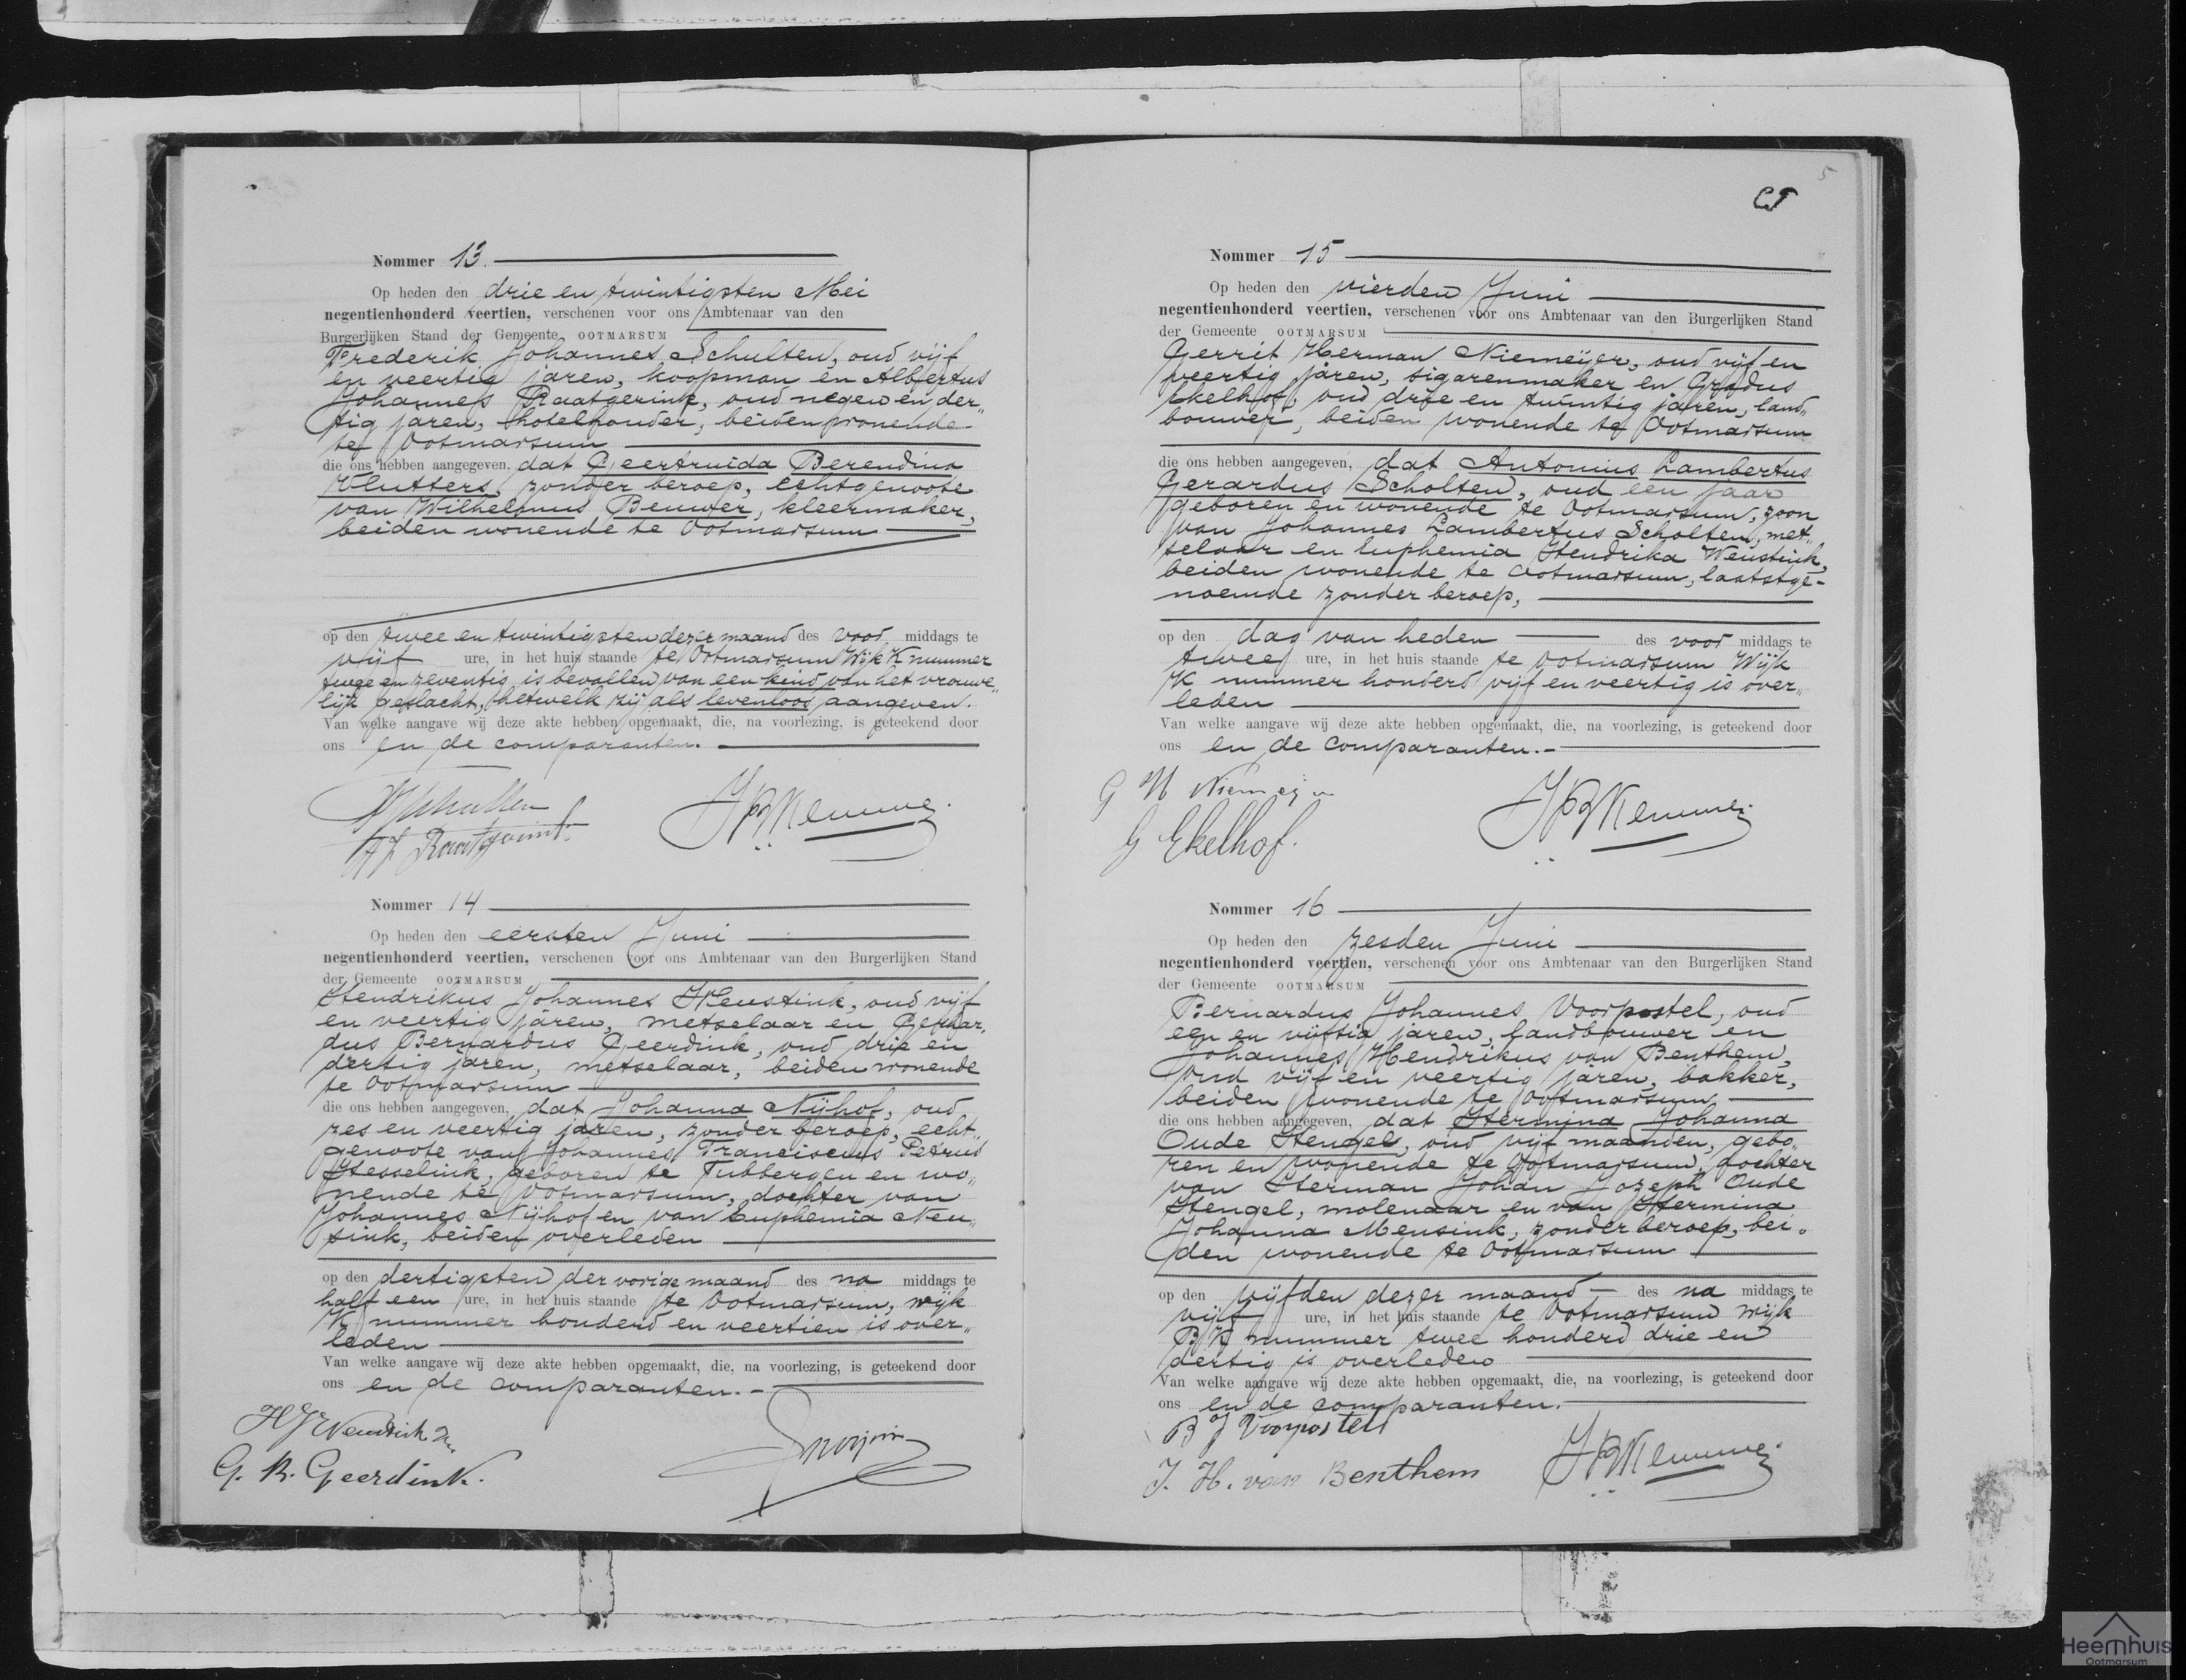 Nommer 13.
Op heden den drie en twintigsten Mei
negentienhonderd veertien, verschenen voor ons Ambtenaar van den
Burgerlijken Stand der Gemeente OOTMARSUM
Frederik Johannes Schulten, oud vijf
en veertig jaren, koopman en Albertus
Johannes Raatgerink, oud negen en der„
tig jaren, hotelhouder, beiden wonende
te Ootmarsum
die ons hebben aangegeven, dat Geertruida Berendina
Klutters, zonder beroep, echtgenoote
van Wilhelmus Beuwer, kleermaker,
beiden wonende te Ootmarsum
op den twee en twintigsten dezer maand des voor middags te
vijf ure, in het huis staande te Ootmarsum Wijk K nummer
twee en zeventig is bevallen van een kind van het vrouwe„
lijk geslacht, hetwelk zij als levenloos aangeven.
Van welke aangave wij deze akte hebben opgemaakt, die, na voorlezing, is geteekend door
ons en de comparanten.
Nommer 14
Op heden den eersten Juni
negentienhonderd veertien, verschenen voor ons Ambtenaar van den Burgerlijken Stand
der Gemeente OOTMARSUM
Hendrikus Johannes Weustink, oud vijf
en veertig jaren, metselaar en Gerhar„
dus Bernardus Geerdink, oud drie en
dertig jaren, metselaar, beiden wonende
te Ootmarsum
die ons hebben aangegeven, dat Johanna Nijhof, oud
zes en veertig jaren, zonder beroep, echt„
genoote van Johannes Franciscus Petrus
Hesselink, geboren te Tubbergen en wo„
nende te Ootmarsum, dochter van
Johannes Nijhof en van Euphemia Neu„
sink, beiden overleden
op den dertigsten der vorige maand des na middags te
half een ure, in het huis staande te Ootmarsum, wijk
K nummer honderd en veertien is over„
leden
Van welke aangave wij deze akte hebben opgemaakt, die, na voorlezing, is geteekend door
ons en de comparanten.-
HJ Weustink
G. B. Geerdink.
5
Nommer 15
Op heden den vierden Juni
negentienhonderd veertien, verschenen voor ons Ambtenaar van den Burgerlijken Stand
der Gemeente OOTMARSUM
Gerrit Herman Niemeijer, oud vijf en
veertig jaren, sigarenmaker en Gradus
Ekelhof, oud drie en twintig jaren, land„
bouwer, beiden wonende te Ootmarsum
die ons hebben aangegeven, dat Antonius Lambertus
Gerardus Scholten, oud een jaar
geboren en wonende te Ootmarsum, zoon
van Johannes Lambertus Scholten, met„
selaar en Euphemia Hendrika Weustink,
beiden wonende te Ootmarsum, laatstge-
noemde zonder beroep,
op den dag van heden des voor middags te
twee ure, in het huis staande te Ootmarsum Wijk
K nummer honderd vijf en veertig is over„
leden
Van welke aangave wij deze akte hebben opgemaakt, die, na voorlezing, is geteekend door
ons en de comparanten.-
G H Niemeyer
G Ekelhof.
Nommer 16
Op heden den zesden Juni
negentienhonderd veertien, verschenen voor ons Ambtenaar van den Burgerlijken Stand
der Gemeente OOTMARSUM
Bernardus Johannes Voorpostel, oud
een en vijftig jaren, landbouwer en
Johannes Hendrikus van Benthem,
oud vijf en veertig jaren, bakker,
beiden wonende te Ootmarsum
die ons hebben aangegeven, dat Hermina Johanna
Oude Hengel, oud vijf maanden, gebo„
ren en wonende te Ootmarsum, dochter
van Herman Johan Jozeph Oude
Hengel, molenaar en van Hermina
Johanna Mensink, zonder beroep, bei„
den wonende te Ootmarsum
op den vijfden dezer maand des na middags te
vijf ure, in het huis staande te Ootmarsum wijk
K nummer twee honderd drie en
dertig is overleden
Van welke aangave wij deze akte hebben opgemaakt, die, na voorlezing, is geteekend door
ons en de comparanten.
B J Voorpostel
J. H. van Benthem
Heemhuis
Ootmarsum